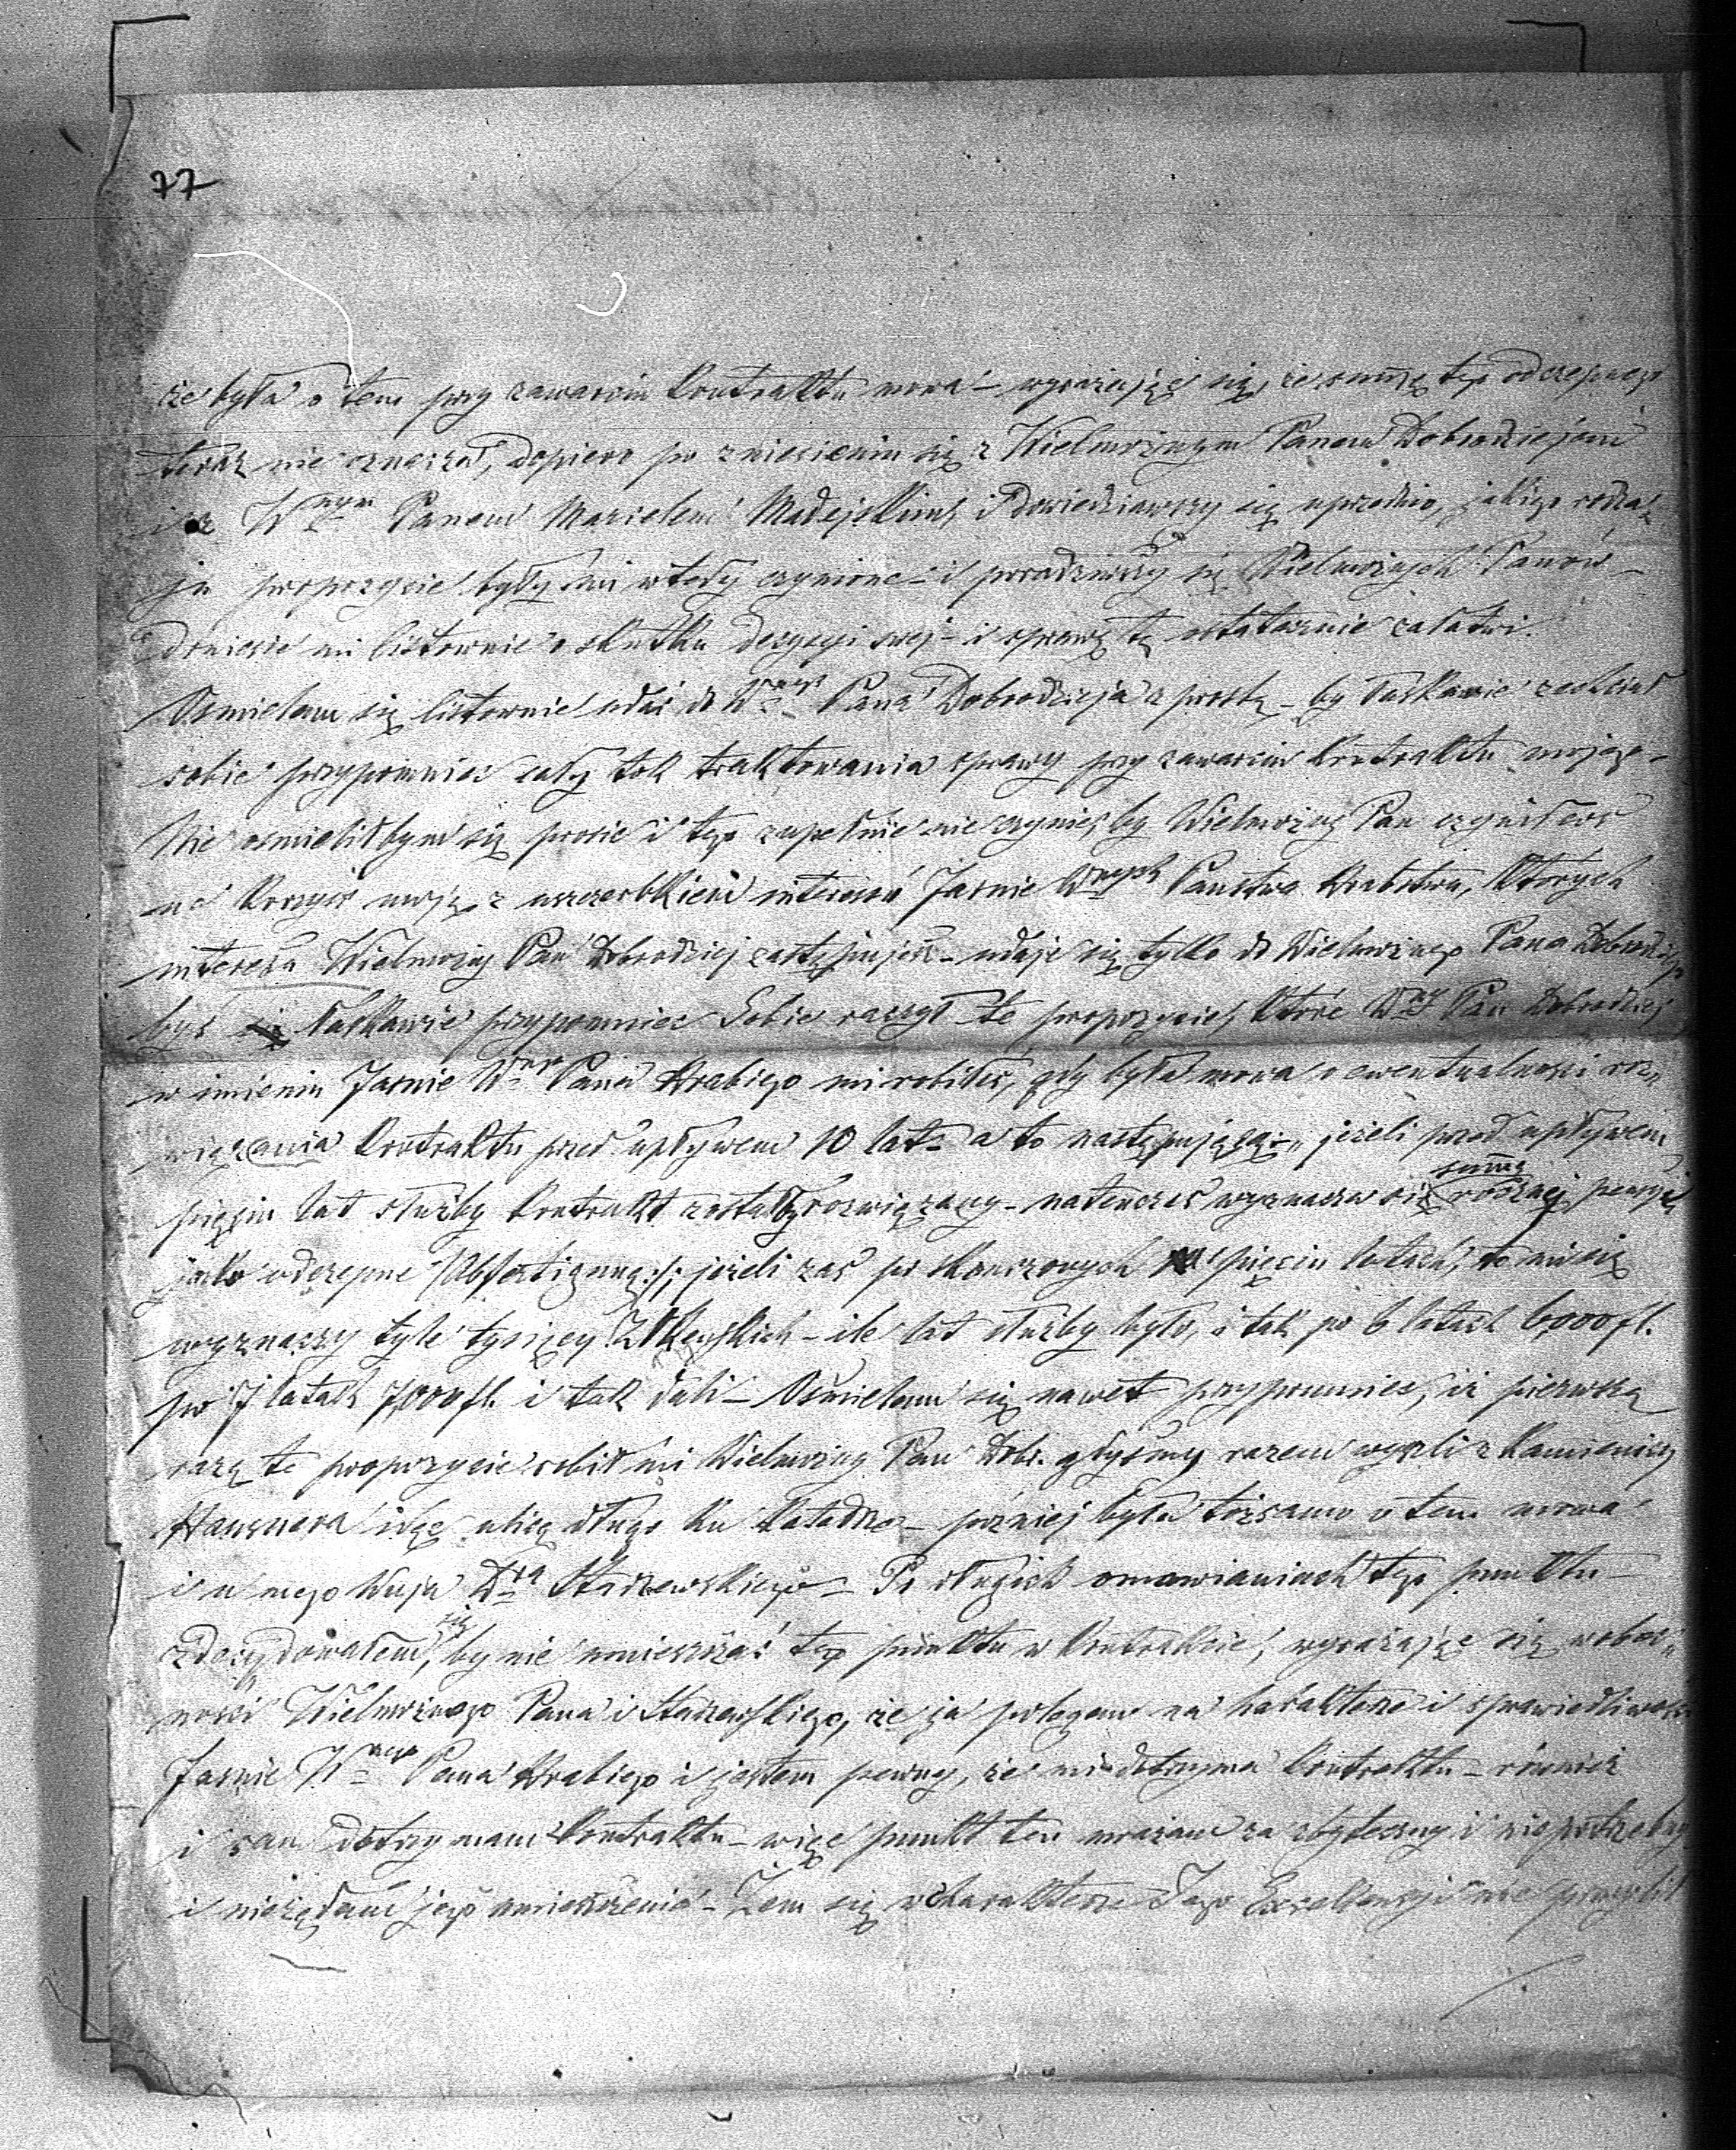 77
że była o tem przy zawarciu kontraktu mowa – wyrażając się, że sumę tego odczepnego
teraz nie oznacza, dopiero po zniesieniu się z Wielmożnym Panem Dobrodziejem
i z Wnym Panem Marcelem Madejskim, i dowiedziawszy się uprzednio, jakiego rodza-
ju propozycie były mi wtedy czynione – i poradziwszy się Wielmożnych Panów –
doniesie mi listownie o skutku decyzyi swej – i sprawę tę ostatecznie załatwi.
Osmielam się listownie udać do Wgo Pana Dobrodzieja z prosbą – by łaskawie zechciał
sobie przypomniec cały tok traktowania sprawy przy zawarciu kontraktu mojego –
Nie osmieliłbym się prosic i tego zupełnie nie czynię, by Wielmożny Pan czynił coś
na korzyść moją z uszczerbkiem interesów Jasnie Wnych Państwa Hrabstwa, których
interesa Wielmożny Pan Dobrodziej zastępujesz – udaję się tylko do Wielmożnego Pana Dobrodzieja
byś łaskawie przypomniec Sobie raczył te propozycie, które Wny Pan Dobrodziej
w imieniu Jasnie Wgo Pana Hrabiego mi robiłeś, gdy była mowa o ewentualności roz-
wiązania kontraktu przed upływem 10 lat – a to następującą: „jeżeli przed upływem
pięciu lat służby kontrakt zostałby rozwiązany – natenczas wyznacza się sumę roczną pensyę
jako odczepne /:Abfertigung:/; jeżeli zaś po skonczonych pięciu latach, to mi się
wyznaczy tyle tysięcy Złt. Reńskich – ile lat służby było, i tak po 6 latach 6000 fl.
po 7 latach 7000 fl. i tak dali – Osmielam się nawet przypomniec, iż pierwszą
razą te propozycie robił mi Wielmożny Pan Dobr. gdyśmy razem wyszli z kamienicy
Hausnera idąc ulicą długo ku Katedrze – później była toż samo o tem mowa
i u mego Wuja Dra Starzewskiego – Po długich omawianiach tego punktu –
zdecydowałem się, by nie umieszczać tego punktu w kontrakcie, wyrażając się w obec-
ności Wielmożnego Pana i Starzewskiego, że ja polegam na harakterze i sprawiedliwości
Jasnie Wnego Pana Hrabiego i jestem pewny, że mi dotrzyma kontraktu – również
i sam dotrzymam kontraktu – więc punkt ten uważam za zbyteczny i niepotrzebny
i nieżądam jego umieszczenia – Żem się w charakterze Jego Excellencji nie